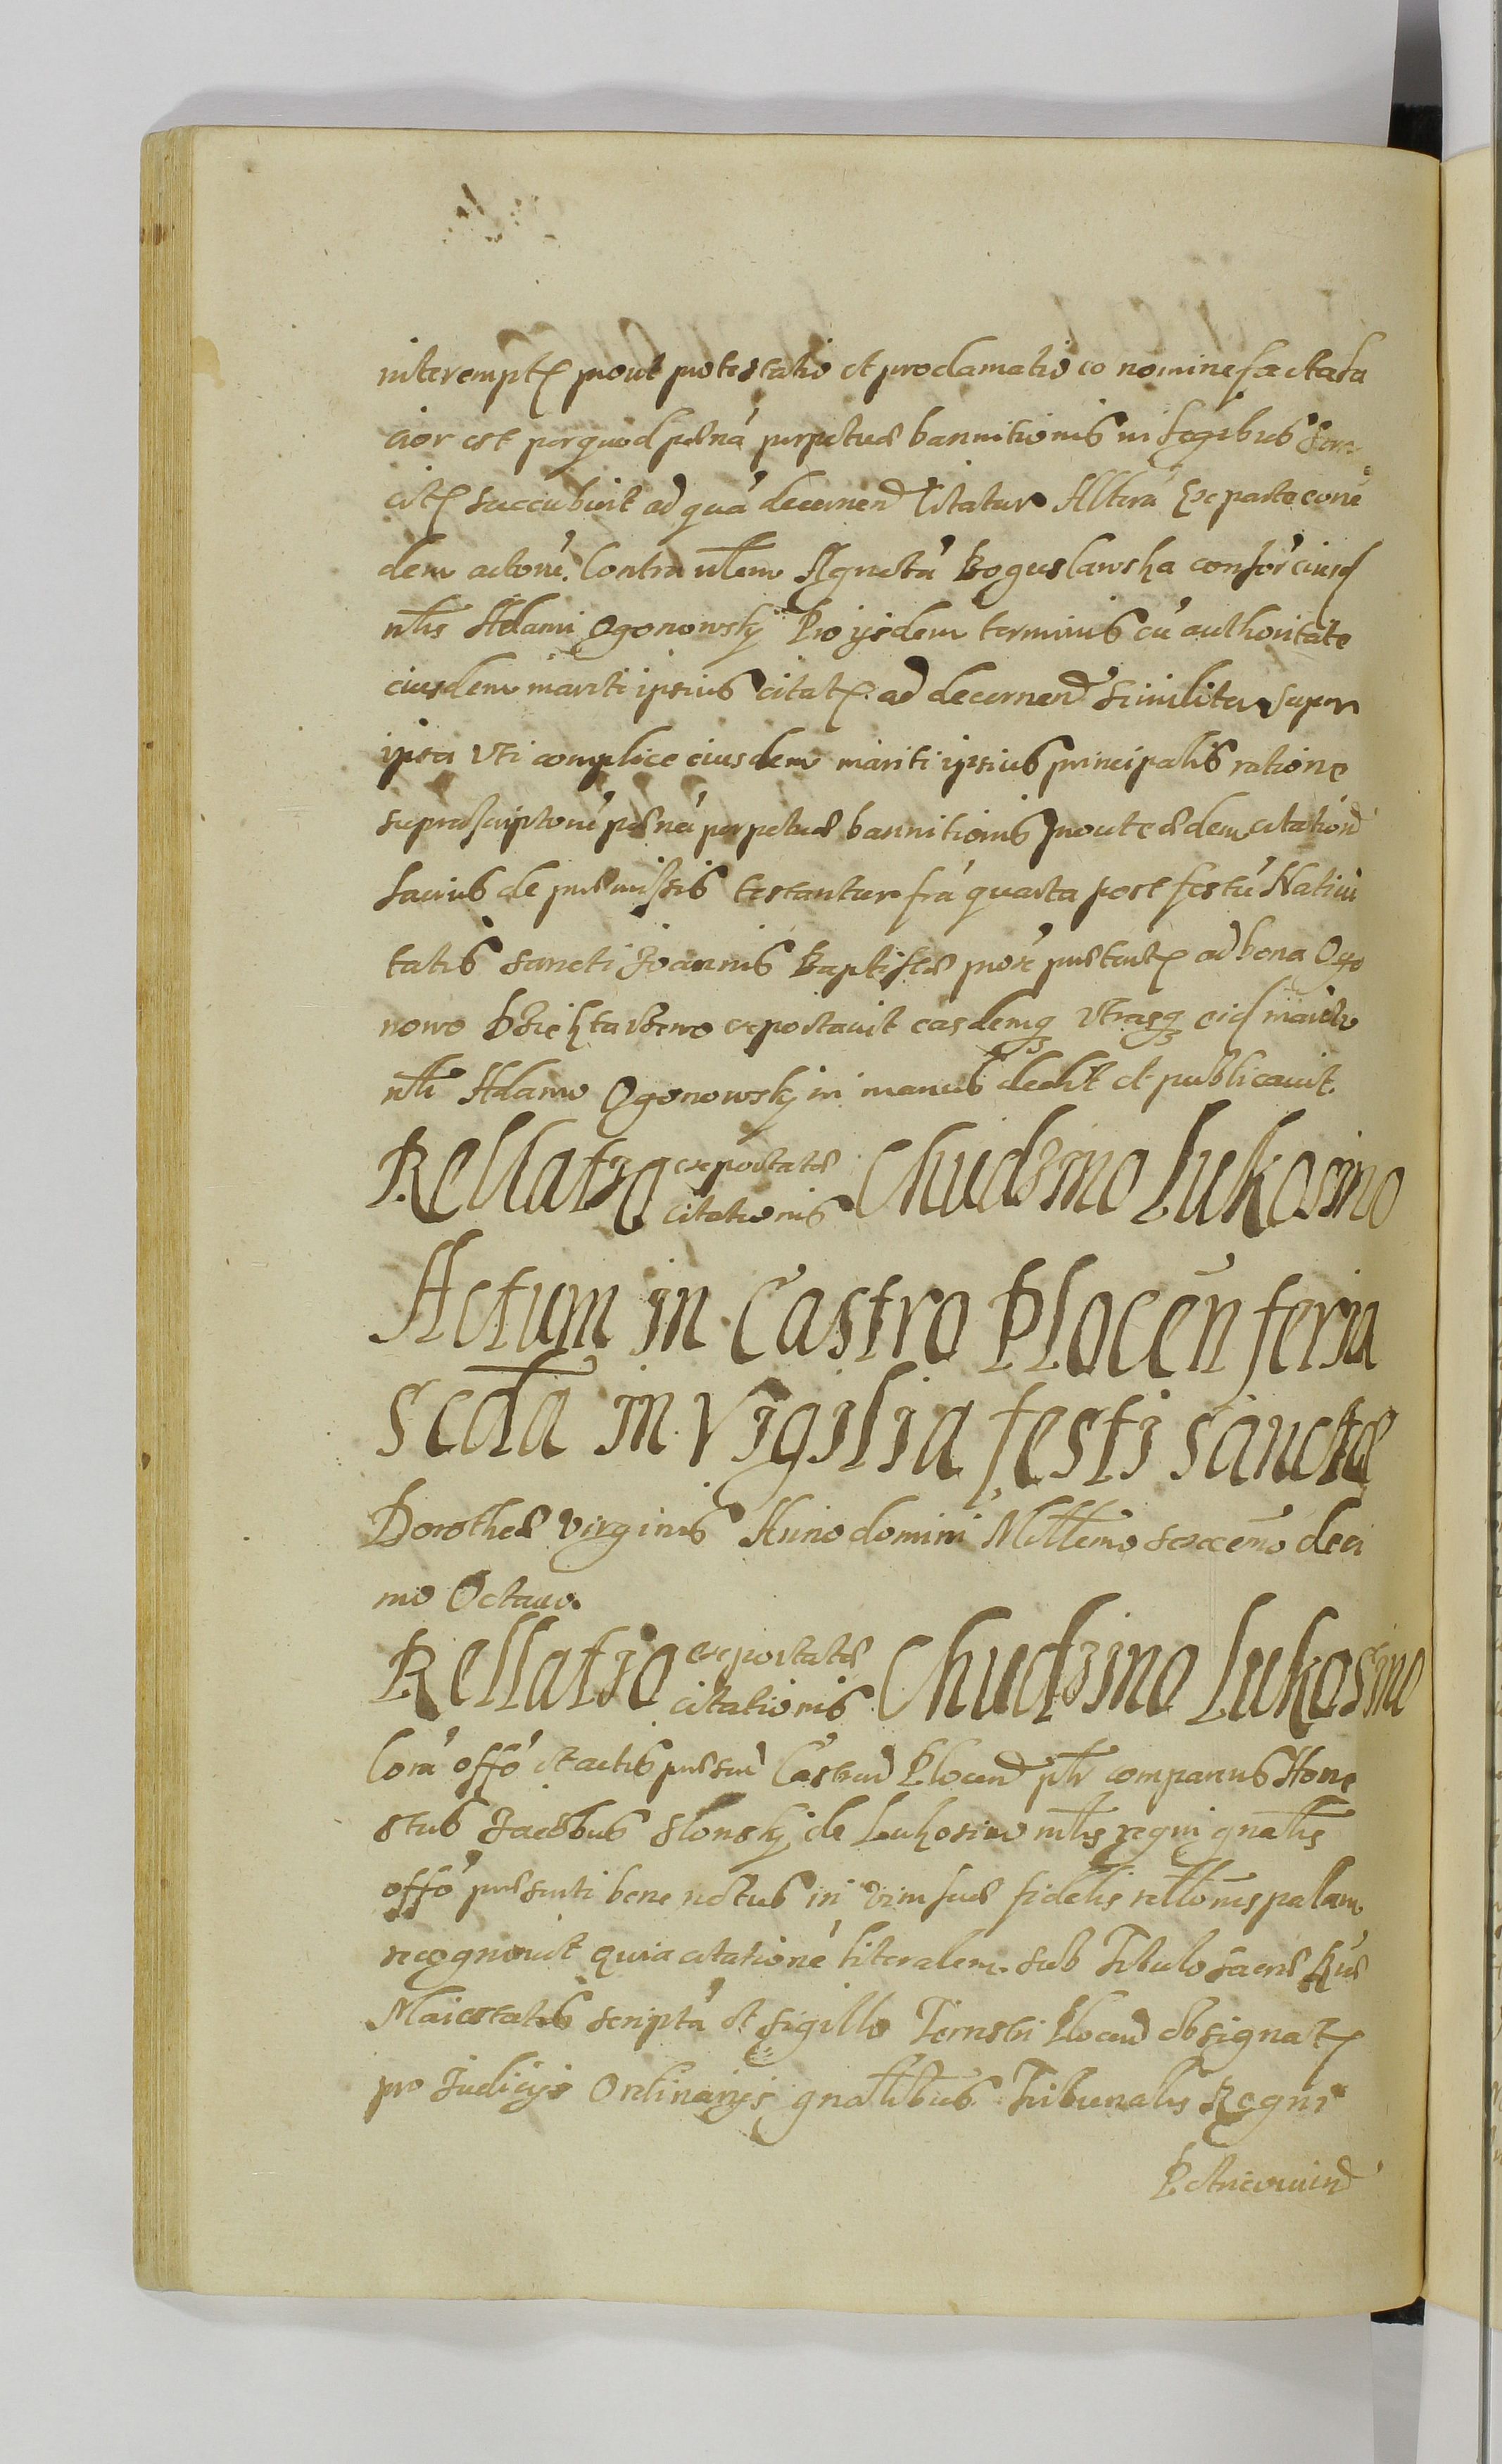 interempt prout protestatio et proclamatio eo nomine facta la
cior est per quod pœná perpetuæ bannitionis in legibus
succubuit ad quá decernend Citatur Alterá Ex parte eorú
dem actorú. Contra nlem Agnetá Boguslawska consor eiusd
nlis Adami Ogonowskÿ Pro ijsdem terminis cú authoritate
eiusdem mariti ipsius citat ad decernend similiter super
ipsa Vti complice eiusdem mariti ipsius principalis ratione
suprascriptorú pœná perpetuæ bannitionis prout eædem citation
Lacius de præmissis testantur fiá quarta post festú Natiui
tatis Sancti Joannis Baptistæ proxe præterit ad bona Ogo
nowo exportauit easdemq Vtrasq eid
nli Adamo Ogonowskj in manus dedit et publicauit.
Rellatio exportatæ citationis Chudzino Lukosino
Actum in Castro Plocen feria
Scda in Vigilia festi sanctæ
Dorotheæ Virginis Anno domini Millemo sexcemo deci
mo Octauo.
Rellatio exportatæ citationis Chudzino Lukosino
Corá offó et actis præsen Castren Plocen pth comparens Hone
stus Jacobus Slonskj de Lukosino mtlis regni gnalis
offó præsenti bene notus in vim suæ fidelis rellonis palam
recognouit quia citationé literalem sub Titulo Sacræ Ræ
Maiestatis scriptá et sigillo Terrestri Plocen obsignat
pro Judicijs Ordinarijs gnalibus Tribunalis Regni